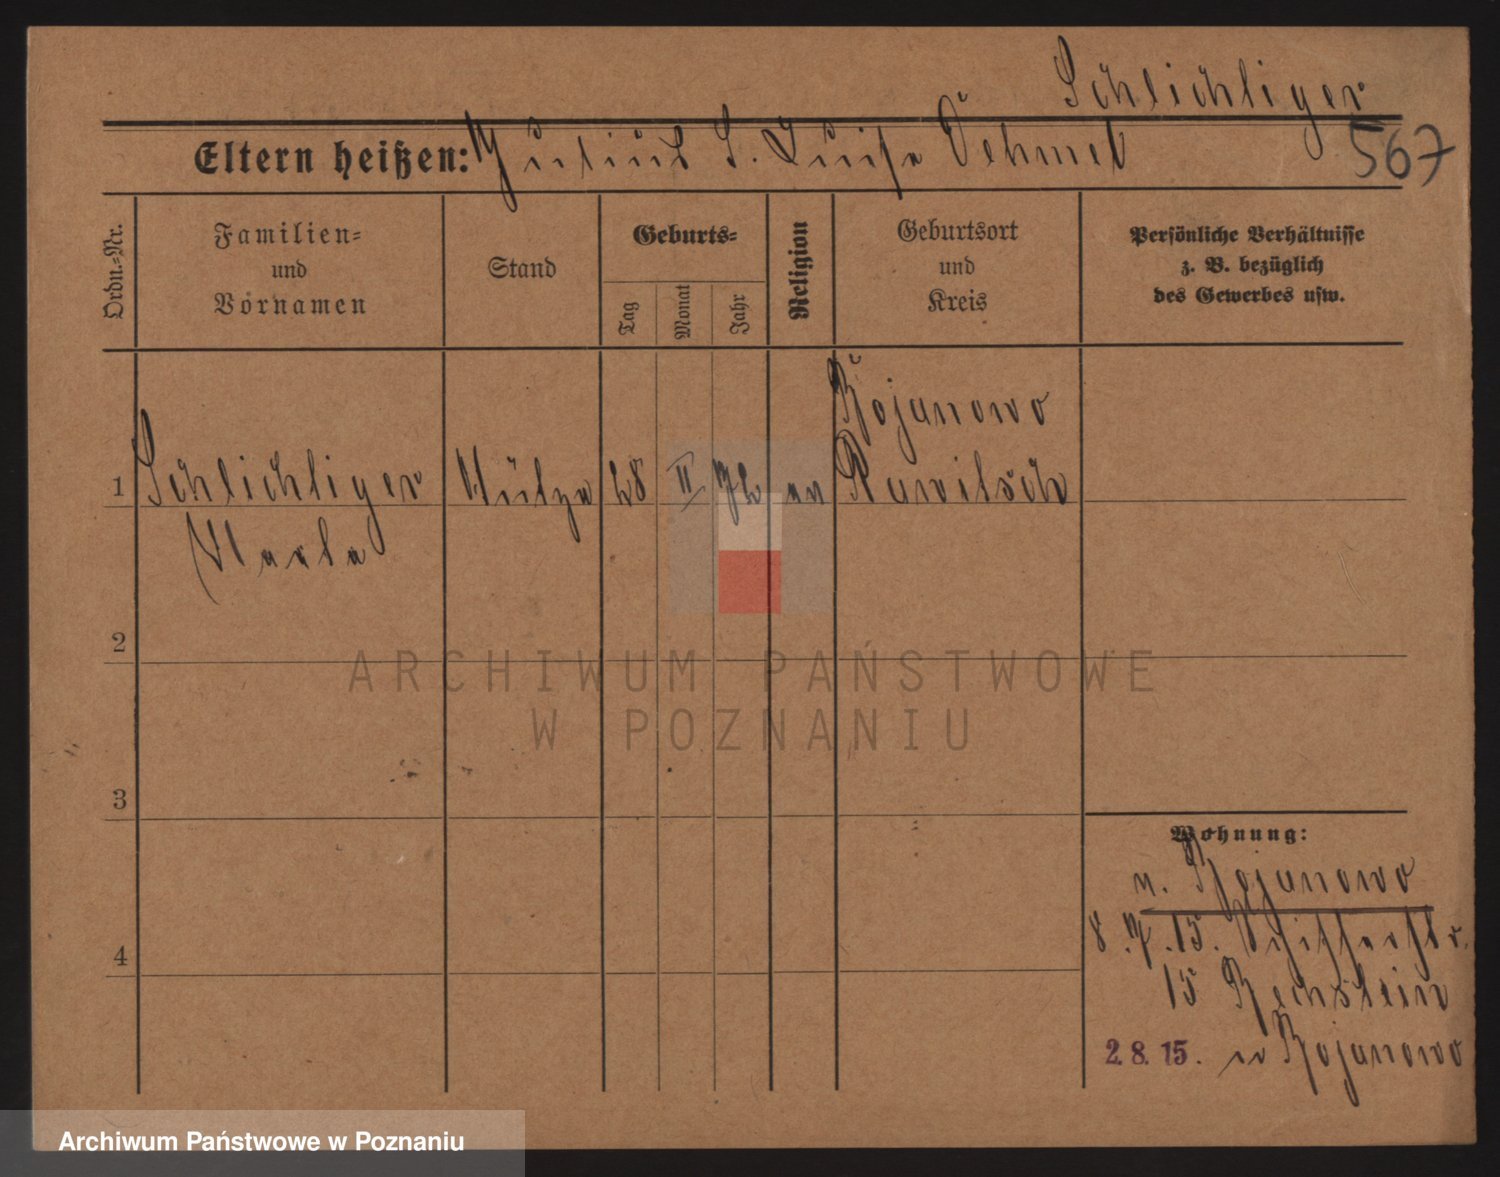 Schlichtiger
567
Eltern heißen: Julius S. Luise Oehmel
Ordn.-Nr.
Familien-
und
Vornamen
Stand
Geburts-
Tag
Monat
Jahr
Religion
Geburtsort
und
Kreis
Persönliche Verhältnisse
z. B. bezüglich
des Gewerbes usw.
Bojanowo
1 Schlichtiger Stütze 28 II 92 ev Rawitsch
2
3
4
Wohnung:
n. Bojanowo
8.7.15.
15 Bechstein
2.8.15. n Bojanowo
ARCHIWUM PAŃSTWOWE
W POZNANIU
Archiwum Państwowe w Poznaniu